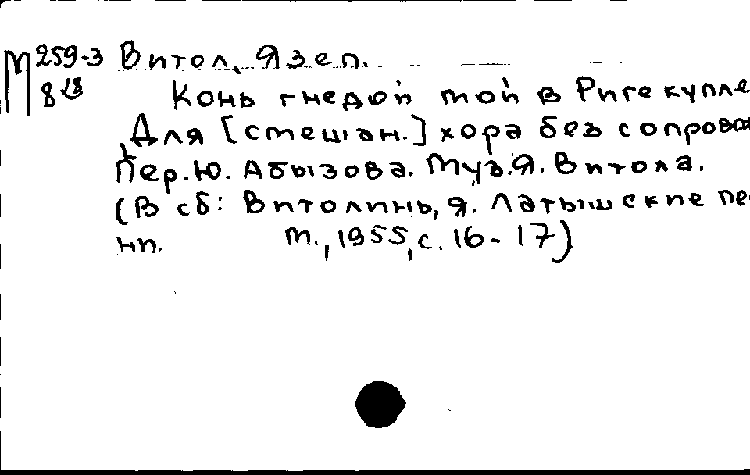 М 259-3 Витол, Язеп.
8
Конь гнедой мой в Риге купле
Для [смешан.] хора без сопров
Пер. Ю. Абызова. Муз. Я. Витола.
(В сб: Витолинь, Я. Латышские пе
нп. М., 1955, с. 16-17)